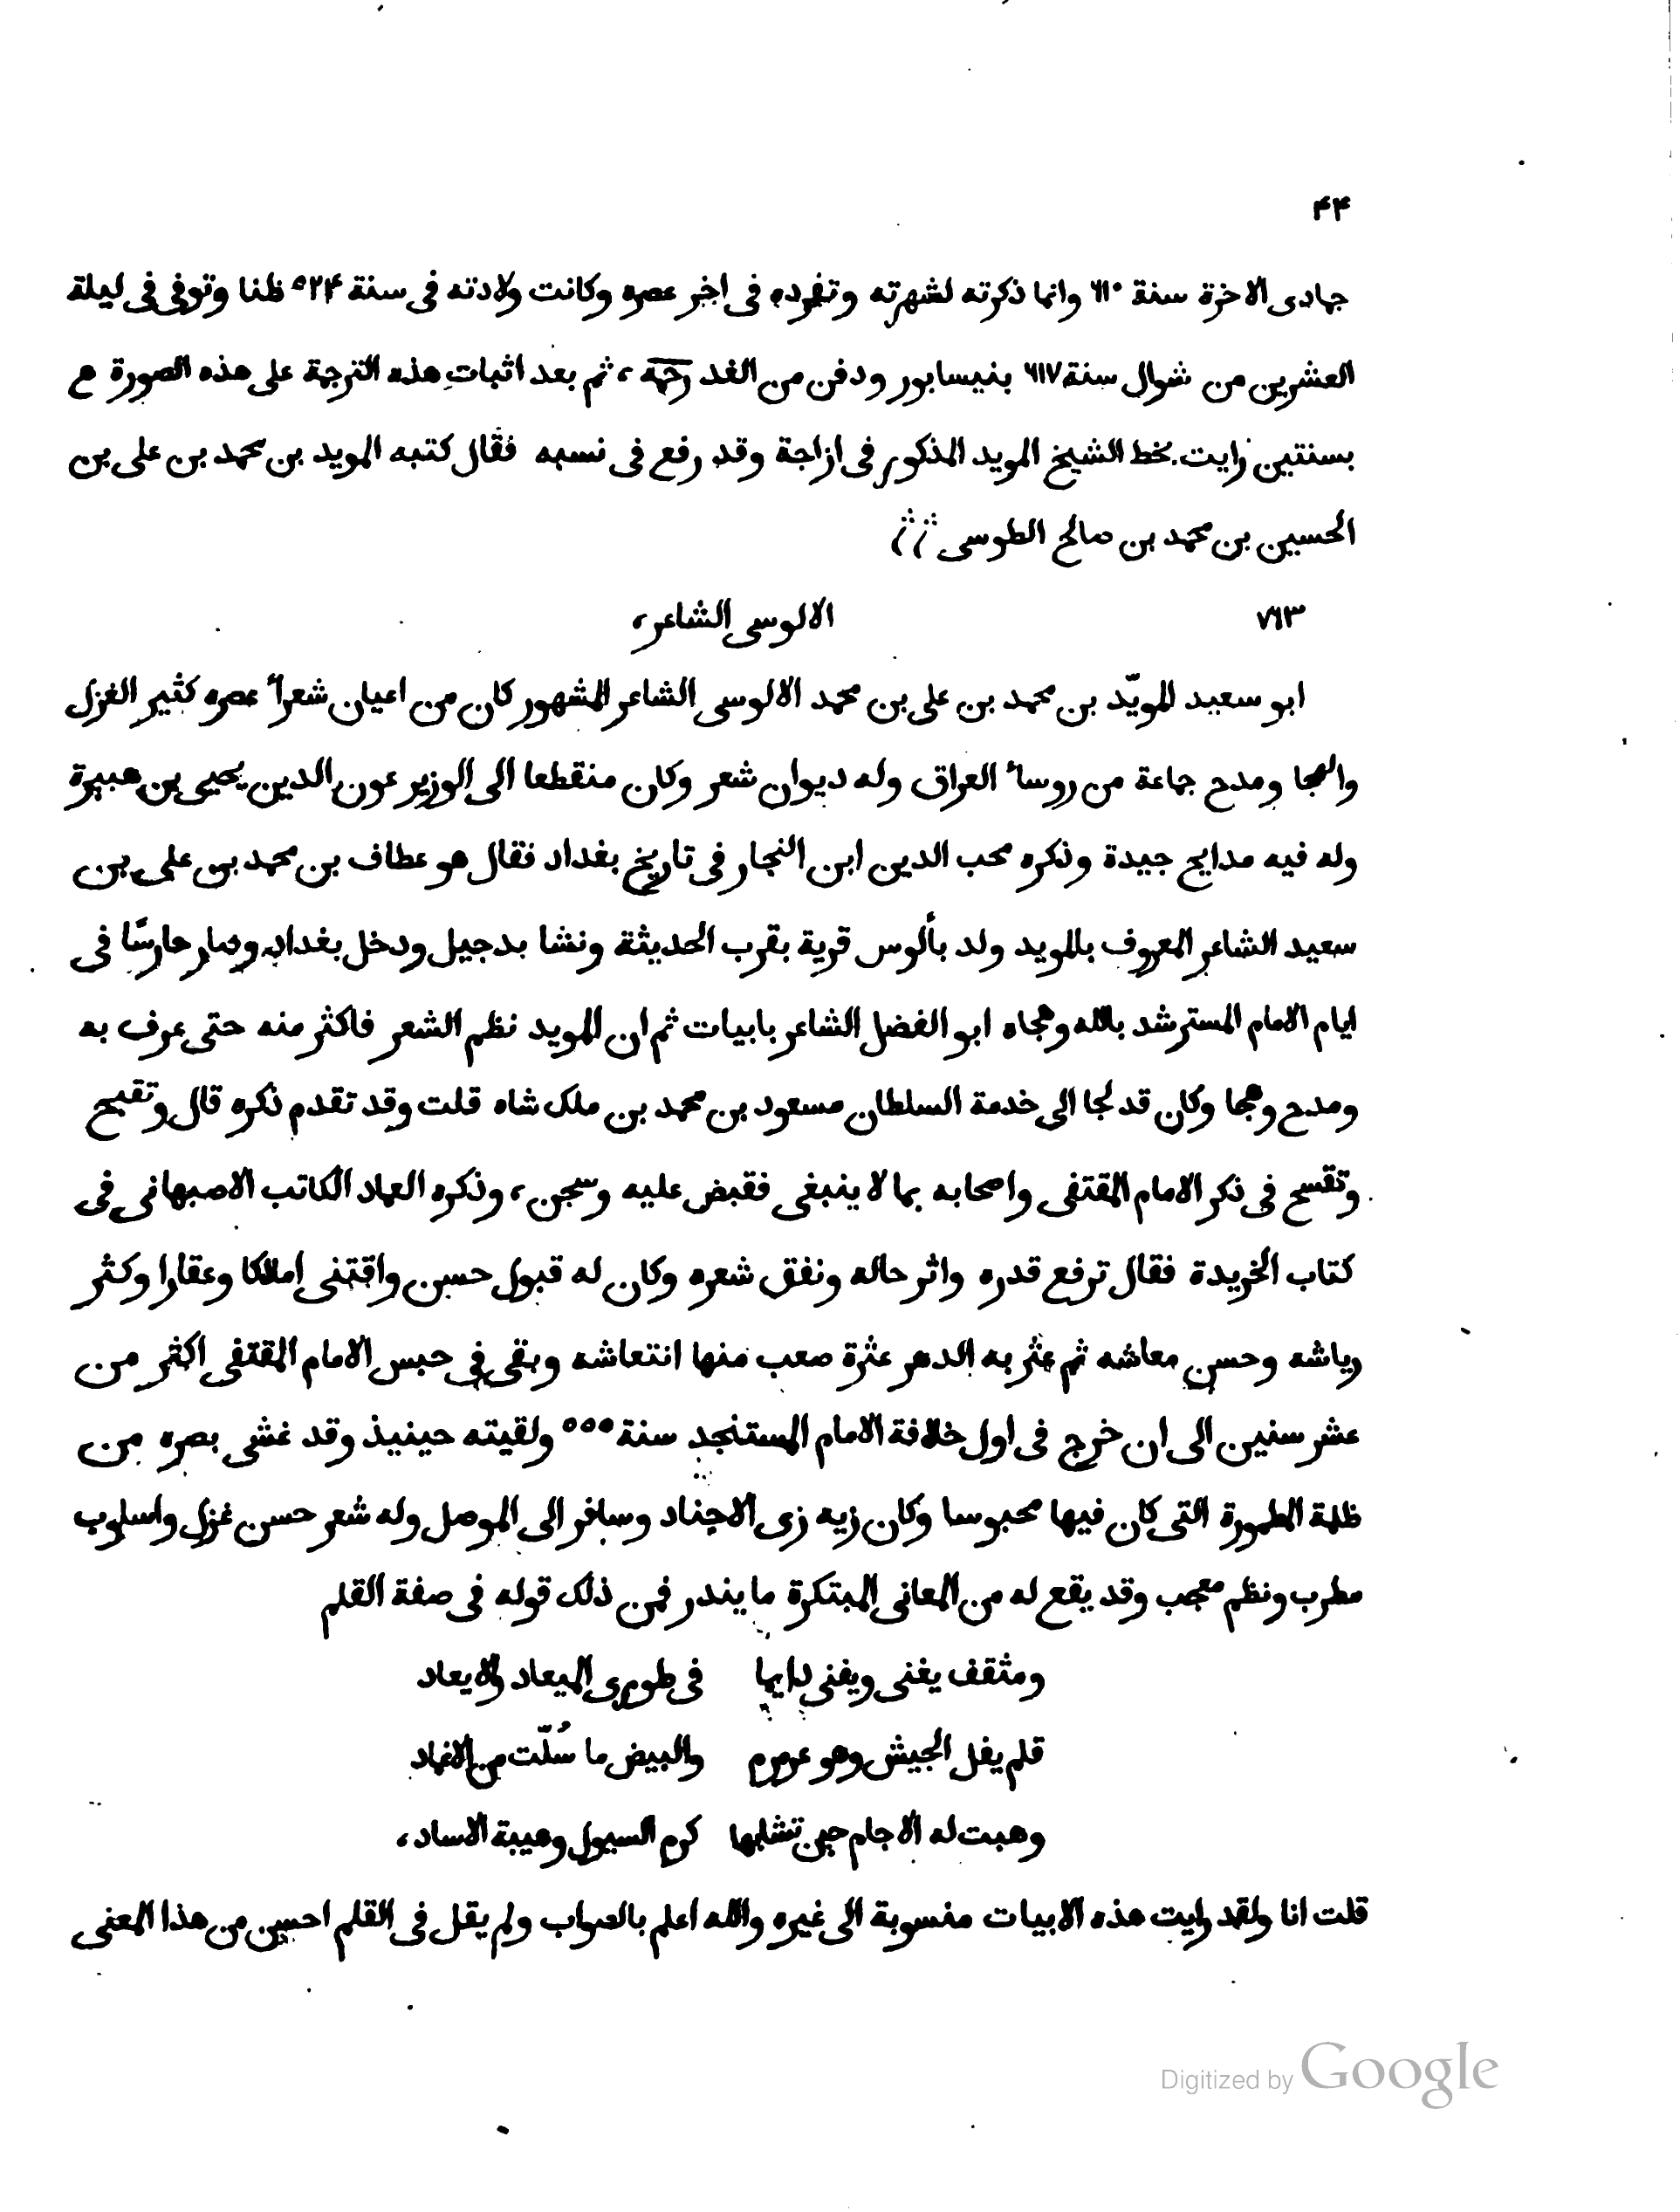 ۴۴
جمادى الاخرة سنة ٦١٠ وانما ذكرته لشهرته وتفرده فى اخر عصره وكانت ولادته فى سنة ٥٢۴ ظنا وتوفى فى ليلة
العشرين من شوال سنة ٦١٧ بنيسابور ودفن من الغد رحمه، ثم بعد اثبات هذه الترجمة على هذه الصورة
بسنتين رايت بخط الشيخ المويد المذكور فى ازاجة وقد رفع فى نسبه فقال كتبه المويد بن محمد بن على بن
الحسين بن محمد بن صالح الطوسى
٧٦٣ الالوسى الشاعر،
ابو سعيد المويّد بن محمد بن على بن محمد الالوسى الشاعر المشهور كان من اعيان شعرآ عصره كثير الغزل
والهجا ومدح جماعة من روسآ العراق وله ديوان شعر وكان منقطعا الى الوزير عون الدين يحيى بن هبيرة
وله فيه مدايح جيدة وذكره محب الدين ابن النجار فى تاريخ بغداد فقال هو عطاف بن محمد بن على بن
سعيد الشاعر المعروف بالمويد ولد بألوس قرية بقرب الحديثة ونشا بدجيل ودخل بغداد وصار حارسًا فى
ايام الامام المسترشد بالله وهجاه ابو الفضل الشاعر بابيات ثم ان المويد نظم الشعر فاكثر منه حتى عرف به
ومدح وهجا وكان قد لجا الى خدمة السلطان مسعود بن محمد بن ملك شاه قلت وقد تقدم ذكره قال وتقبح
وتفسح فى ذكر الامام المقتفى واصحابه بما لا ينبغى فقبض عليه وسجن، وذكره العماد الكاتب الاصبهانى فى
كتاب الخريدة فقال ترفع قدره واثر حاله ونفق شعره وكان له قبول حسن واقتنى املاكا وعقارا وكثر
رياشه وحسن معاشه ثم عثر به الدهر عثرة صعب منها انتعاشه وبقى فى حبس الامام المقتفى اكثر من
عشر سنين الى ان خرج فى اول خلافة الامام المستنجد سنة ٥٥٥ ولقيته حينيذ وقد غشى بصره من
ظلمة المطمورة التى كان فيها محبوسا وكان زيه زى الاجناد وسافر الى الموصل وله شعر حسن غزل واسلوب
مطرب ونظم معجب وقد يقع له من المعانى المبتكرة ما يندر فمن ذلك قوله فى صفة القلم
ومثقف يغنى ويفنى دايما فى طورى الميعاد والايعاد
قلم يفل الجيش وهو عرمرم والبيض ما سُلّت من الاغماد
وهبت له الاجام حين نشابها كرم السيول وهيبة الاساد،
قلت انا ولقد رايت هذه الابيات منسوبة الى غيره والله اعلم بالصواب ولم يقل فى القلم احسن من هذا المعنى
Digitized by Google